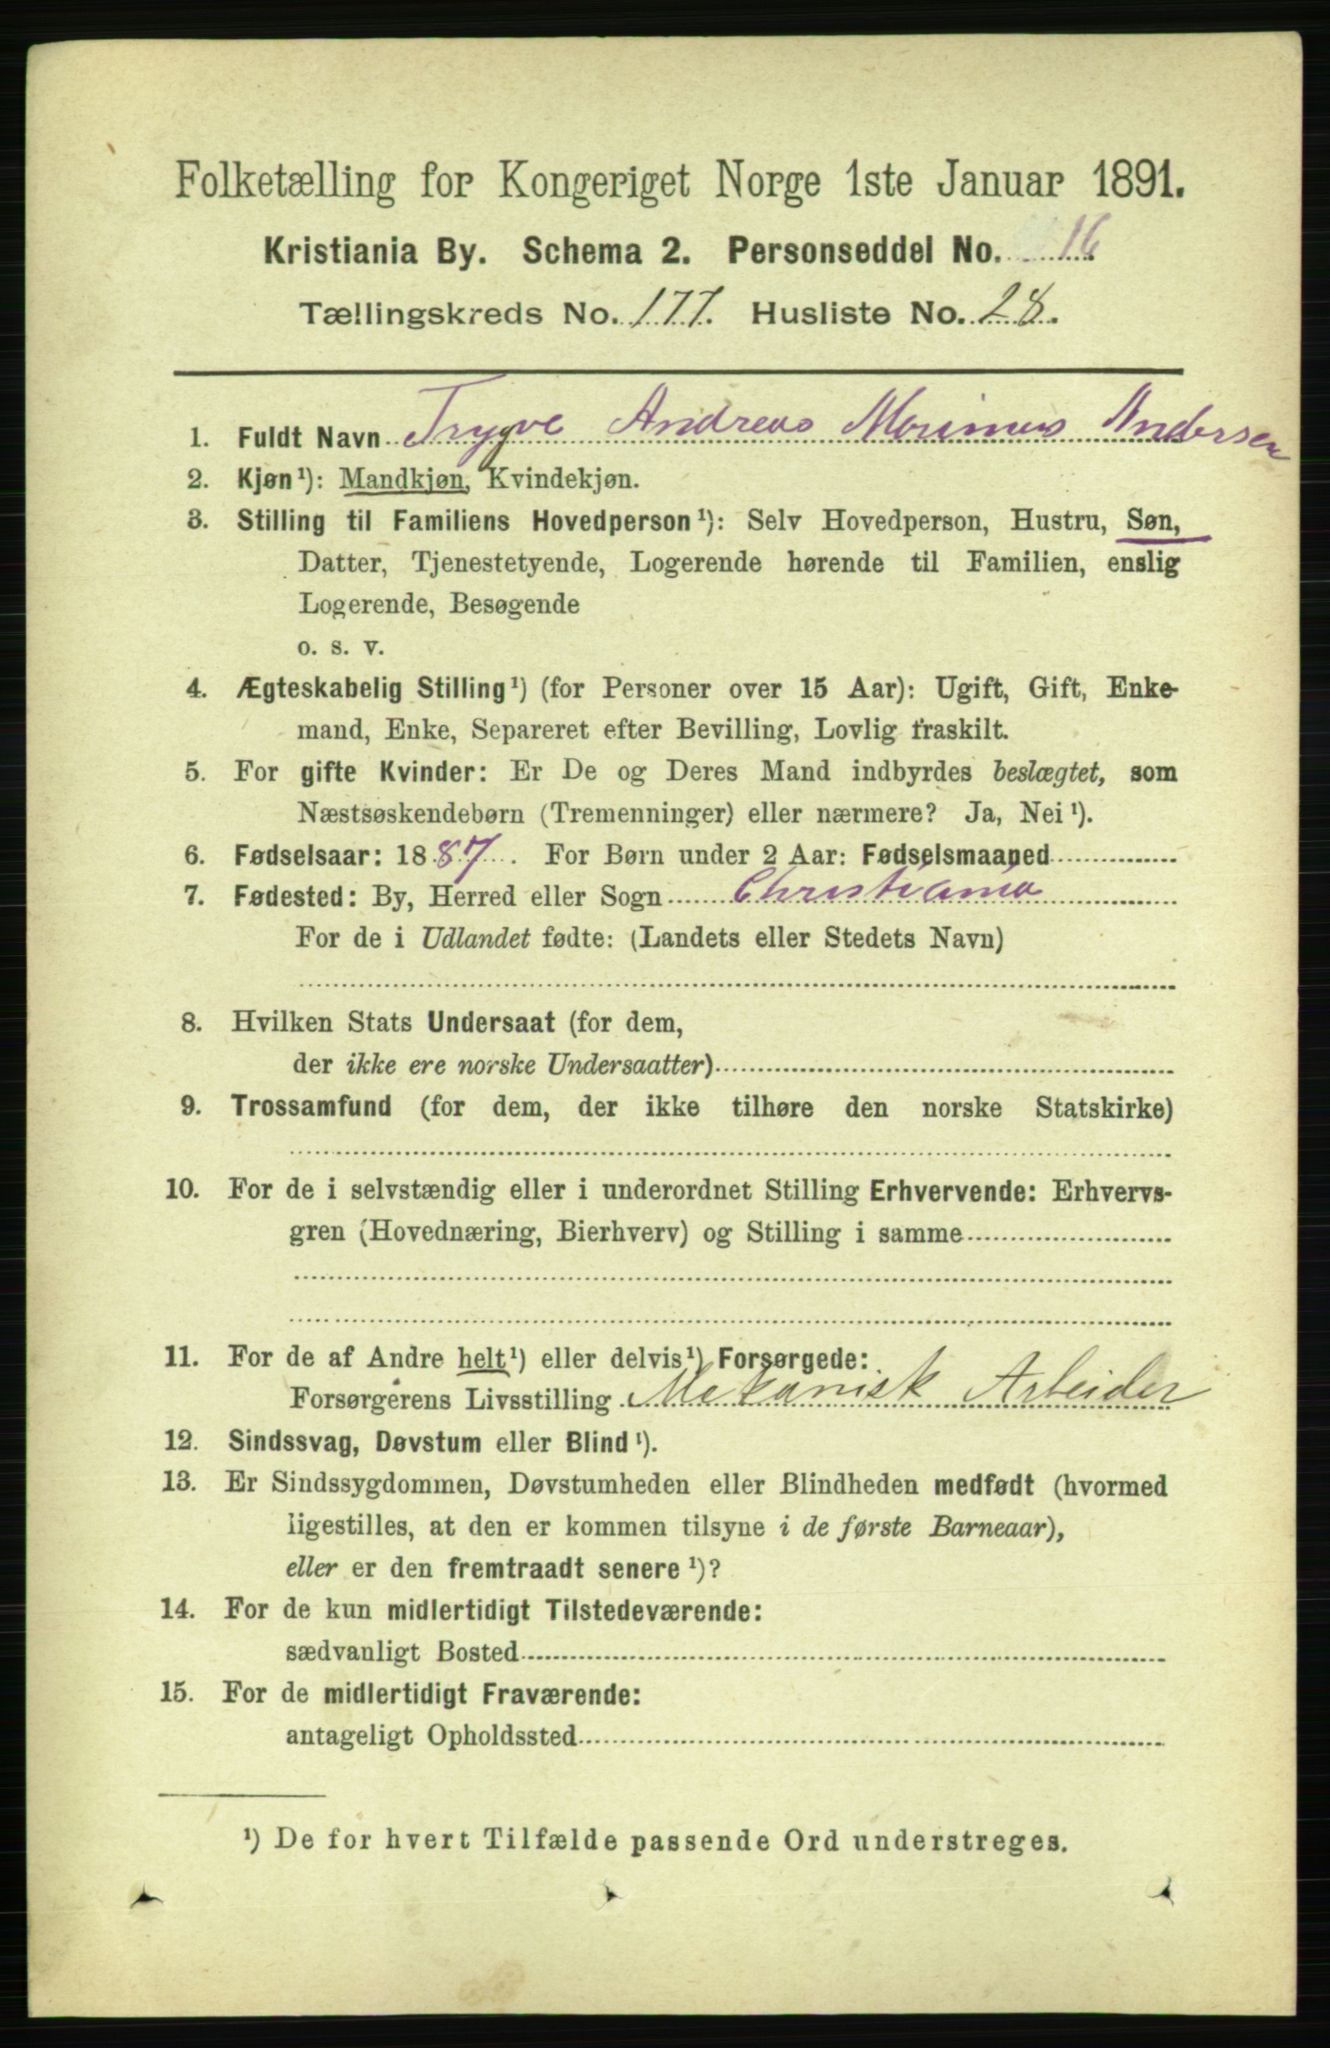 Folketælling for Kongeriget Norge 1ste Januar 1891.
Kristiania By. Schema 2. Personseddel No. 16
Tællingskreds No. 177. Husliste No. 28.
1. Fuldt Navn Trygve Andreas Marinus Andersen
2. Kjøn¹): Mandkjøn, Kvindekjøn.
3. Stilling til Familiens Hovedperson¹): Selv Hovedperson, Hustru, Søn,
Datter, Tjenestetyende, Logerende hørende til Familien, enslig
Logerende, Besøgende
o. s. v.
4. Ægteskabelig Stilling¹) (for Personer over 15 Aar): Ugift, Gift, Enke-
mand, Enke, Separeret efter Bevilling, Lovlig fraskilt.
5. For gifte Kvinder: Er De og Deres Mand indbyrdes beslægtet, som
Næstsøskendebørn (Tremenninger) eller nærmere? Ja, Nei¹).
6. Fødselsaar: 1887. For Børn under 2 Aar: Fødselsmaaned
7. Fødested: By, Herred eller Sogn Christiania
For de i Udlandet fødte: (Landets eller Stedets Navn)
8. Hvilken Stats Undersaat (for dem,
der ikke ere norske Undersaatter)
9. Trossamfund (for dem, der ikke tilhøre den norske Statskirke)
10. For de i selvstændig eller i underordnet Stilling Erhvervende: Erhvervs-
gren (Hovednæring, Bierhverv) og Stilling i samme
11. For de af Andre helt¹) eller delvis¹) Forsørgede:
Forsørgerens Livsstilling Mekanisk Arbeider
12. Sindssvag, Døvstum eller Blind¹).
13. Er Sindssygdommen, Døvstumheden eller Blindheden medfødt (hvormed
ligestilles, at den er kommen tilsyne i de første Barneaar),
eller er den fremtraadt senere¹)?
14. For de kun midlertidigt Tilstedeværende:
sædvanligt Bosted
15. For de midlertidigt Fraværende:
antageligt Opholdssted
¹) De for hvert Tilfælde passende Ord understreges.